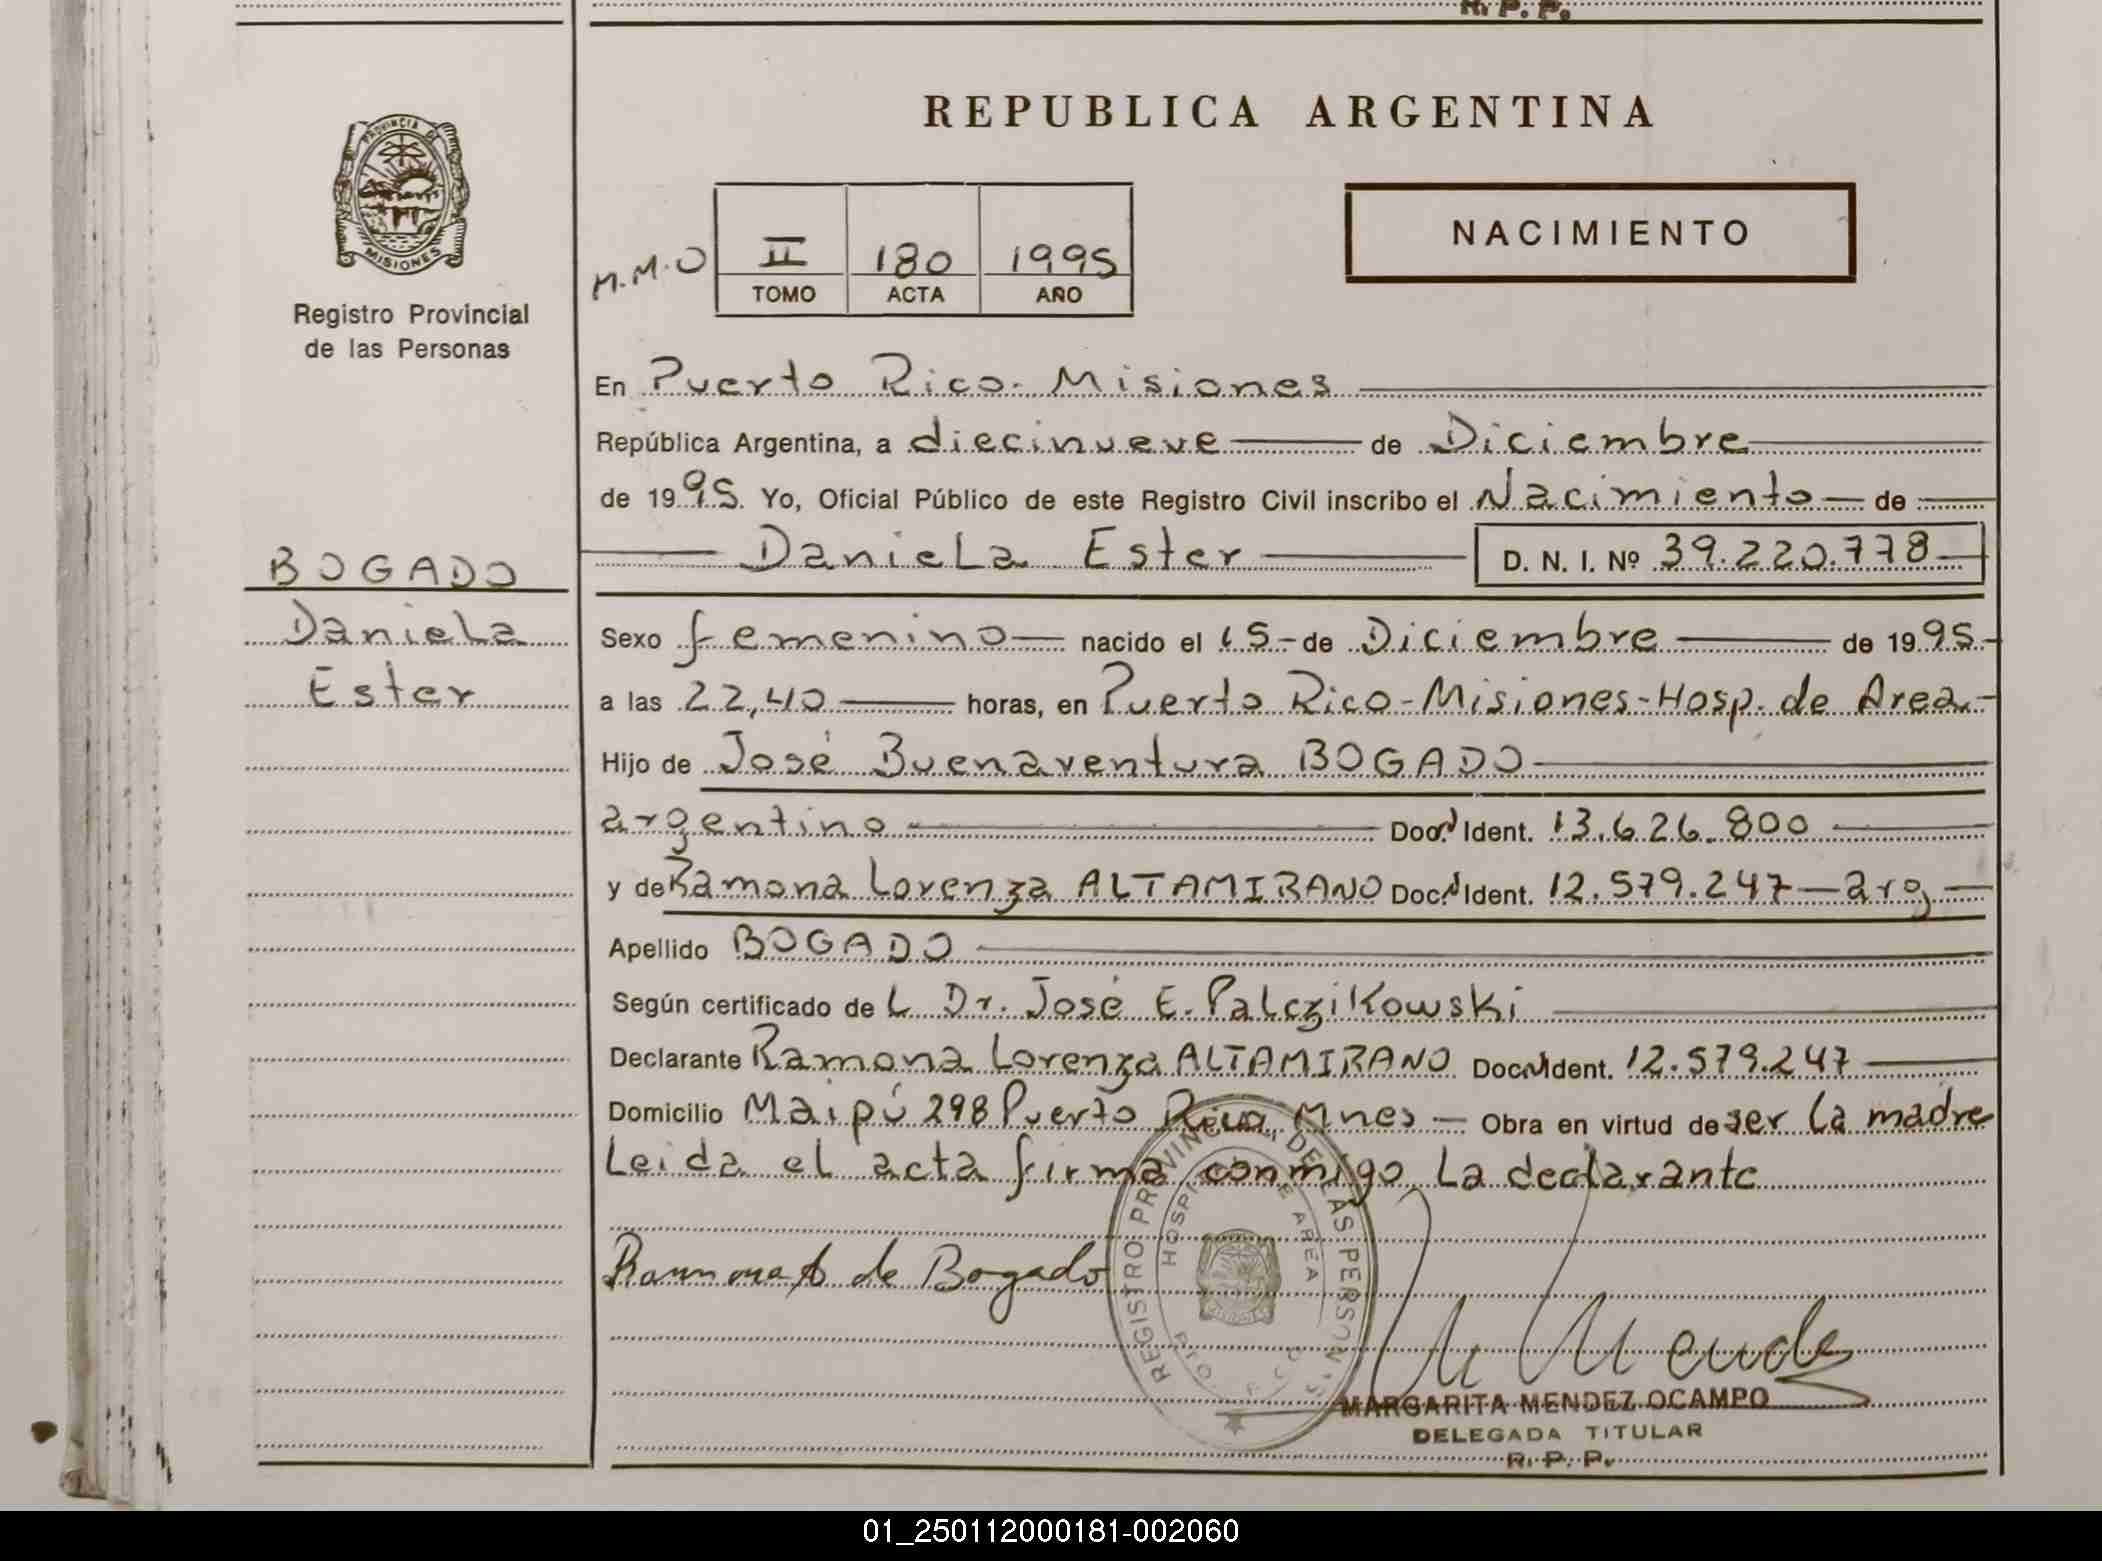 R. P. P.
REPUBLICA ARGENTINA
PROVINCIA DE
MISIONES
Registro Provincial
de las Personas
NACIMIENTO
M.M.O
II 180 1995
TOMO ACTA AÑO
En Puerto Rico. Misiones
República Argentina, a diecinueve de Diciembre
de 1995. Yo, Oficial Público de este Registro Civil inscribo el Nacimiento de
Daniela Ester D. N. I. Nº 39.220.778
BOGADO
Daniela
Ester
Sexo femenino nacido el 15 de Diciembre de 1995
a las 22,40 horas, en Puerto Rico-Misiones-Hosp. de Area
Hijo de José Buenaventura BOGADO
argentino Doc. Ident. 13.626.800
y de Ramona Lorenza ALTAMIRANO Doc. Ident. 12.579.247 arg
Apellido BOGADO
Según certificado de L Dr. José E. Palczikowski
Declarante Ramona Lorenza ALTAMIRANO Doc. Ident. 12.579.247
Domicilio Maipú 298 Puerto Rico, Mnes Obra en virtud de ser la madre
Leida el acta firma conmigo la declarante
Ramona A de Bogado
REGISTRO PROVINCIAL DE LAS PERSONAS
HOSPITAL DE AREA
PTO RICO
M Mendez
MARGARITA MENDEZ OCAMPO
DELEGADA TITULAR
R. P. P.
01_250112000181-002060